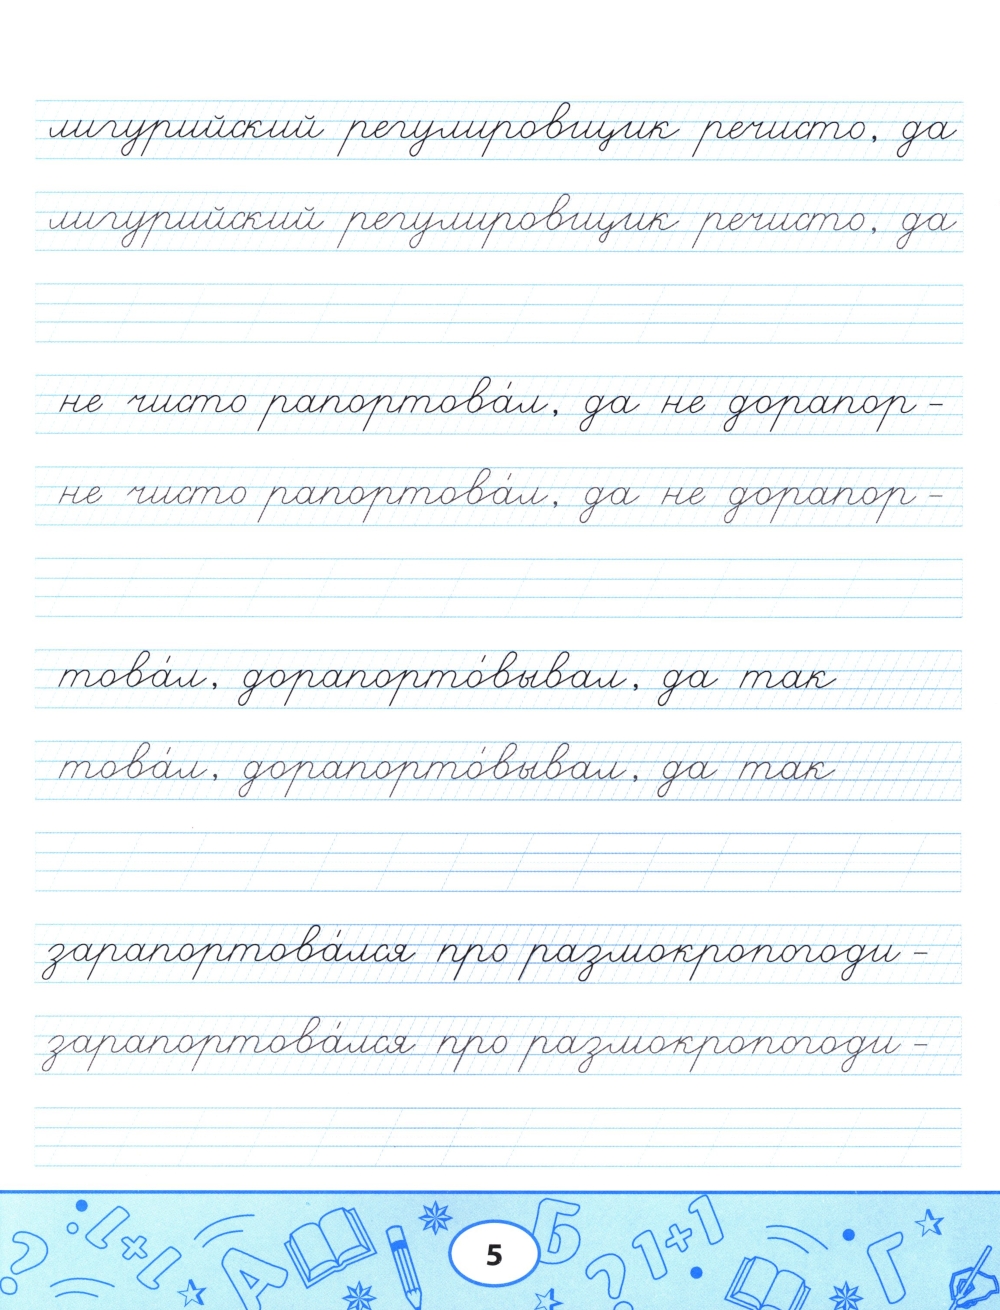 лигурийский регулировщик речисто, да
лигурийский регулировщик речисто, да
не чисто рапортова́л, да не дорапор -
не чисто рапортова́л, да не дорапор -
това́л, дорапорто́вывал, да так
това́л, дорапорто́вывал, да так
зарапортова́лся про размокропогоди -
зарапортова́лся про размокропогоди -
? 1+1 А Б ? 1+1 Г
5